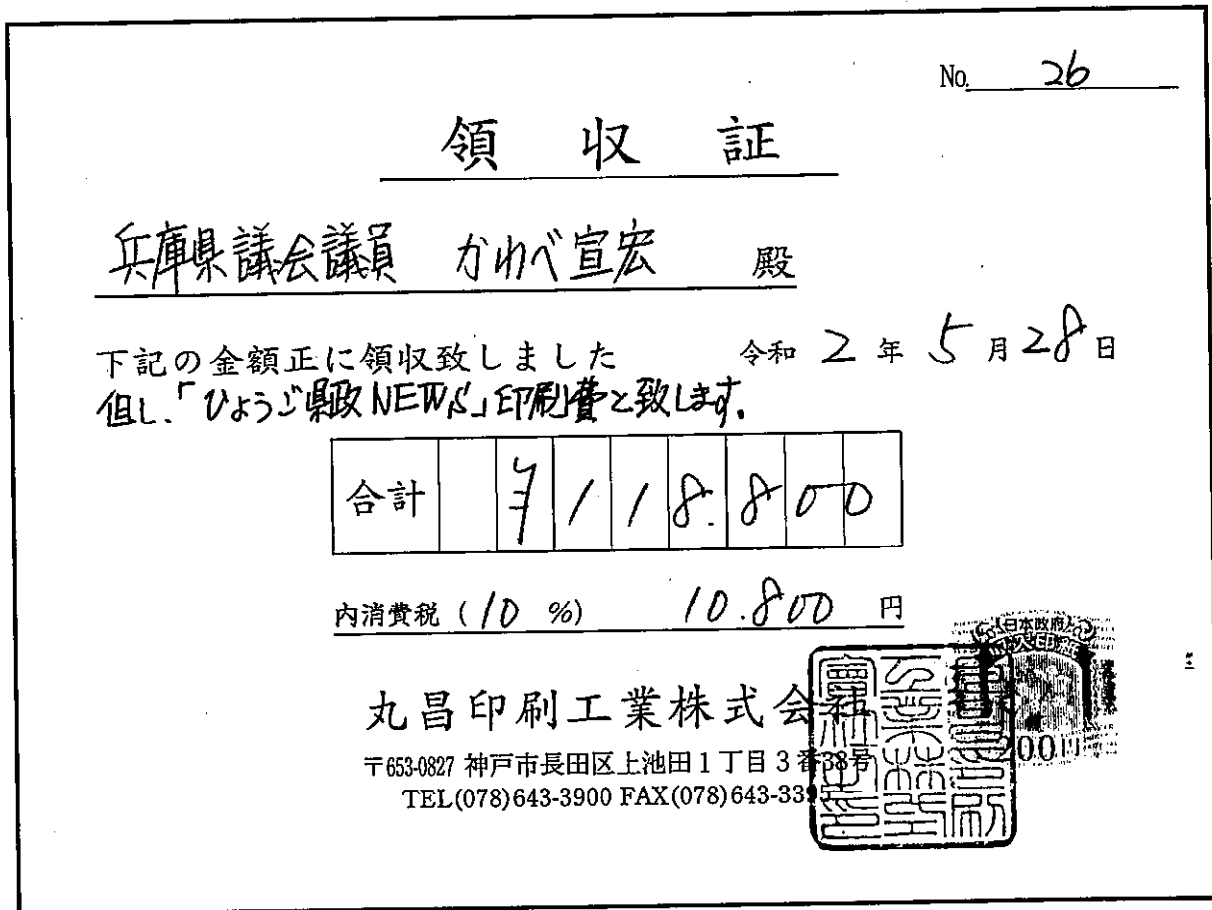 No. 26
領収証
兵庫県議会議員 かわべ宣宏 殿
下記の金額正に領収致しました 令和 2 年 5 月 28 日
但し、「ひょうご県政NEWS」印刷費と致します。
合計 ¥118.800
内消費税 (10 %) 10.800 円
日本政府
収入印紙
200円
丸昌印刷工業株式会社
〒653-0827 神戸市長田区上池田1丁目3番38号
TEL(078)643-3900 FAX(078)643-33